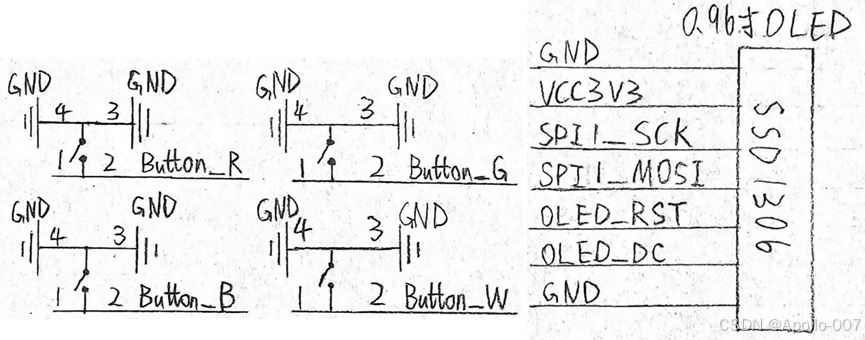 GND GND
4 3
1 2 Button_R
GND GND
4 3
1 2 Button_G
GND GND
4 3
1 2 Button_B
GND GND
4 3
1 2 Button_W
0.96寸OLED
GND
VCC3V3
SPI1_SCK
SPI1_MOSI
OLED_RST
OLED_DC
GND
SSD1306
CSDN @Apollo-007